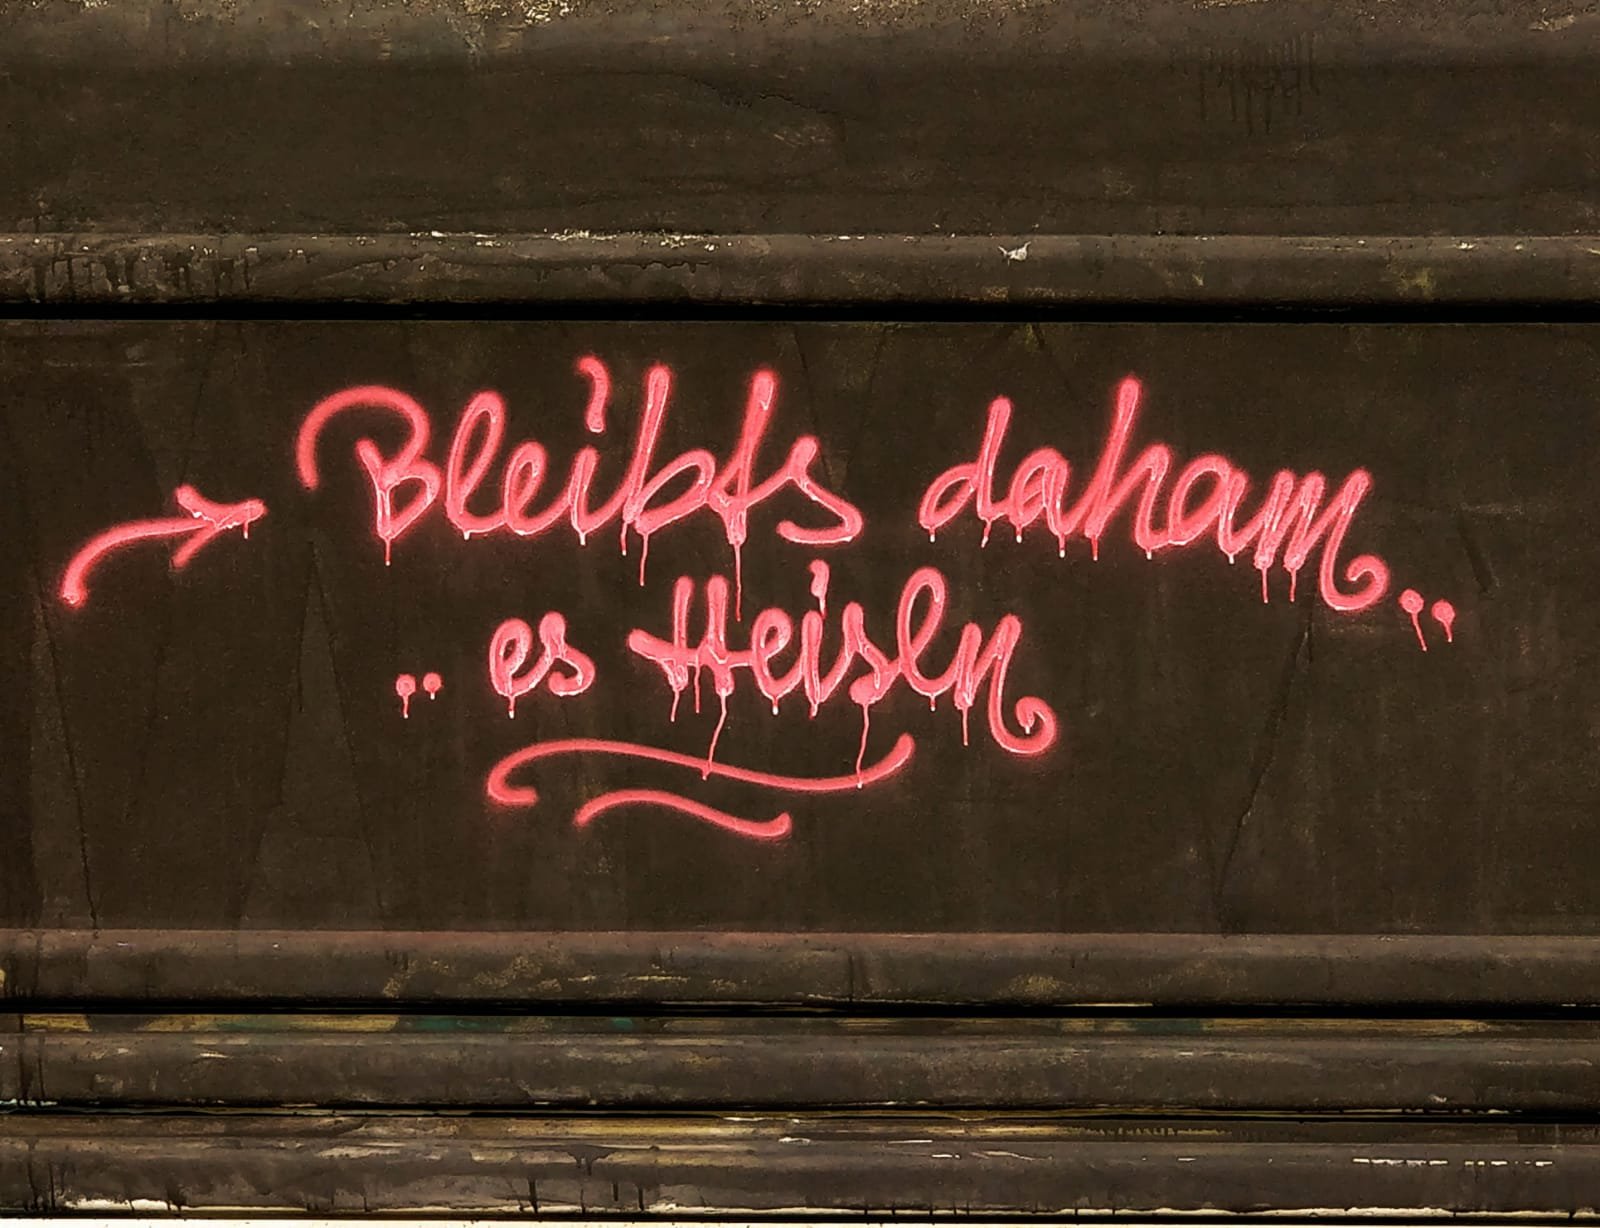 Bleibts daham..
..es Heisln